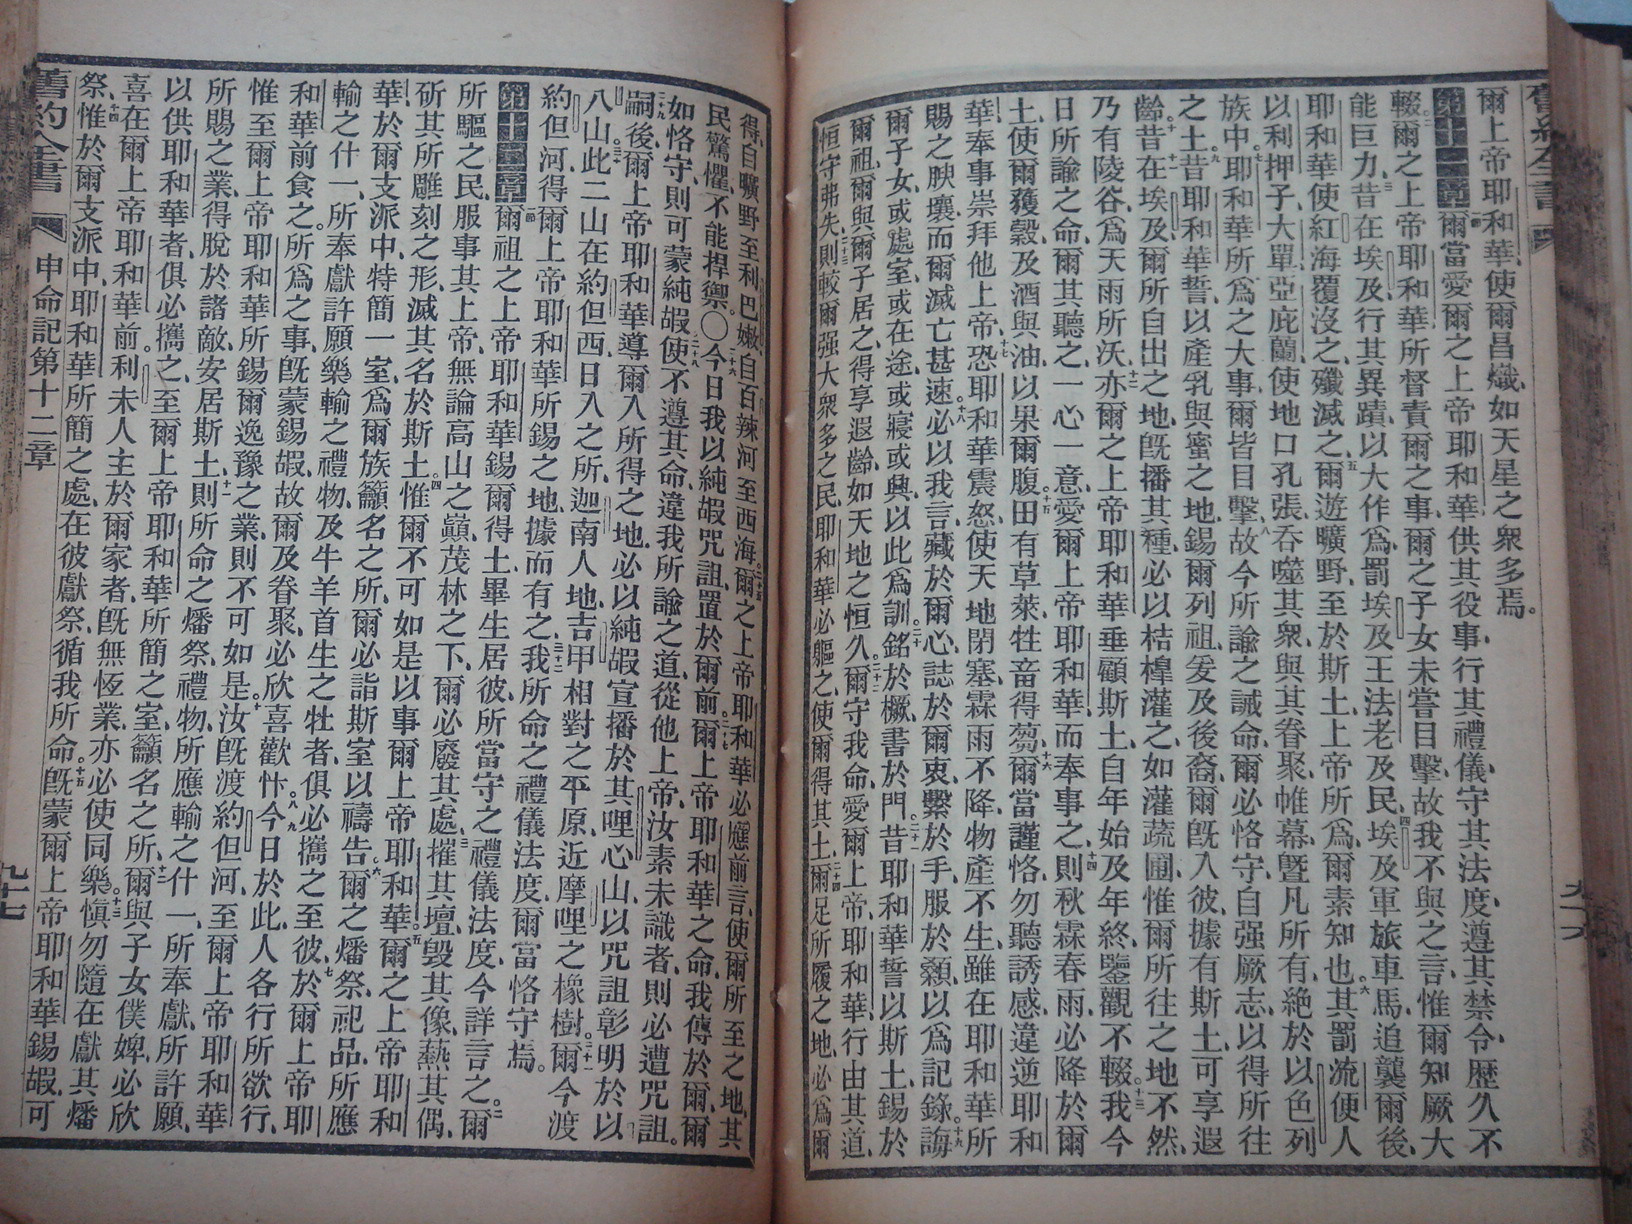 舊約全書
爾上帝耶和華使爾昌熾如天星之衆多焉
第十一章爾當愛爾之上帝耶和華供其役事行其禮儀守其法度遵其禁令歷久不
輟爾之上帝耶和華所督責爾之事爾之子女未嘗目擊故我不與之言惟爾知厥大
能巨力昔在埃及行其異蹟以大作爲罰埃及王法老及民埃及軍旅車馬追襲爾後
耶和華使紅海覆沒之殲滅之爾遊曠野至於斯土上帝所爲爾素知也其罰流便人
以利押子大單亞庇蘭使地口孔張吞噬其衆與其眷聚帷幕曁凡所有絕於以色列
族中耶和華所爲之大事爾皆目擊故今所諭之誡命爾必恪守自强厥志以得所往
之土昔耶和華誓以產乳與蜜之地錫爾列祖爰及後裔爾旣入彼據有斯土可享遐
齡昔在埃及爾所自出之地旣播其種必以桔橰灌之如灌蔬圃惟爾所往之地不然
乃有陵谷爲天雨所沃亦爾之上帝耶和華垂顧斯土自年始及年終鑒觀不輟我今
日所諭之命爾其聽之一心一意愛爾上帝耶和華而奉事之則秋霖春雨必降於爾
土使爾獲穀及酒與油以果爾腹田有草萊牲畜得芻爾當謹恪勿聽誘惑違逆耶和
華奉事崇拜他上帝恐耶和華震怒使天地閉塞霖雨不降物產不生雖在耶和華所
賜之腴壤而爾滅亡甚速必以我言藏於爾心誌於爾衷繫於手服於顙以爲記錄誨
爾子女或處室或在途或寢或興以此爲訓銘於橛書於門昔耶和華誓以斯土錫於
爾祖爾與爾子居之得享遐齡如天地之恒久爾守我命愛爾上帝耶和華行由其道
恒守弗失則較爾强大衆多之民耶和華必驅之使爾得其土爾足所履之地必爲爾
九十六
得自曠野至利巴嫩自百辣河至西海爾之上帝耶和華必應前言使爾所至之地其
民驚懼不能捍禦〇今日我以純嘏咒詛置於爾前爾上帝耶和華之命我傳於爾爾
如恪守則可蒙純嘏使不遵其命違我所諭之道從他上帝汝素未識者則必遭咒詛
嗣後爾上帝耶和華導爾入所得之地必以純嘏宣播於其哩心山以咒詛彰明於以
八山此二山在約但西日入之所迦南人地吉甲相對之平原近摩哩之橡樹爾今渡
約但河得爾上帝耶和華所錫之地據而有之我所命之禮儀法度爾當恪守焉
第十二章爾祖之上帝耶和華錫爾得土畢生居彼所當守之禮儀法度今詳言之爾
所驅之民服事其上帝無論高山之巓茂林之下爾必廢其處摧其壇毀其像爇其偶
斫其所雕刻之形滅其名於斯土惟爾不可如是以事爾上帝耶和華爾之上帝耶和
華於爾支派中特簡一室爲爾族籲名之所爾必詣斯室以禱告爾之燔祭祀品所應
輸之什一所奉獻許願樂輸之禮物及牛羊首生之牡者俱必攜之至彼於爾上帝耶
和華前食之所爲之事旣蒙錫嘏故爾及眷聚必欣喜歡忭今日於此人各行所欲行
惟至爾上帝耶和華所錫爾逸豫之業則不可如是汝旣渡約但河至爾上帝耶和華
所賜之業得脫於諸敵安居斯土則所命之燔祭禮物所應輸之什一所奉獻所許願
以供耶和華者俱必攜之至爾上帝耶和華所簡之室籲名之所爾與子女僕婢必欣
喜在爾上帝耶和華前利未人主於爾家者旣無恆業亦必使同樂愼勿隨在獻其燔
祭惟於爾支派中耶和華所簡之處在彼獻祭循我所命旣蒙爾上帝耶和華錫嘏可
舊約全書 申命記第十二章 九十七